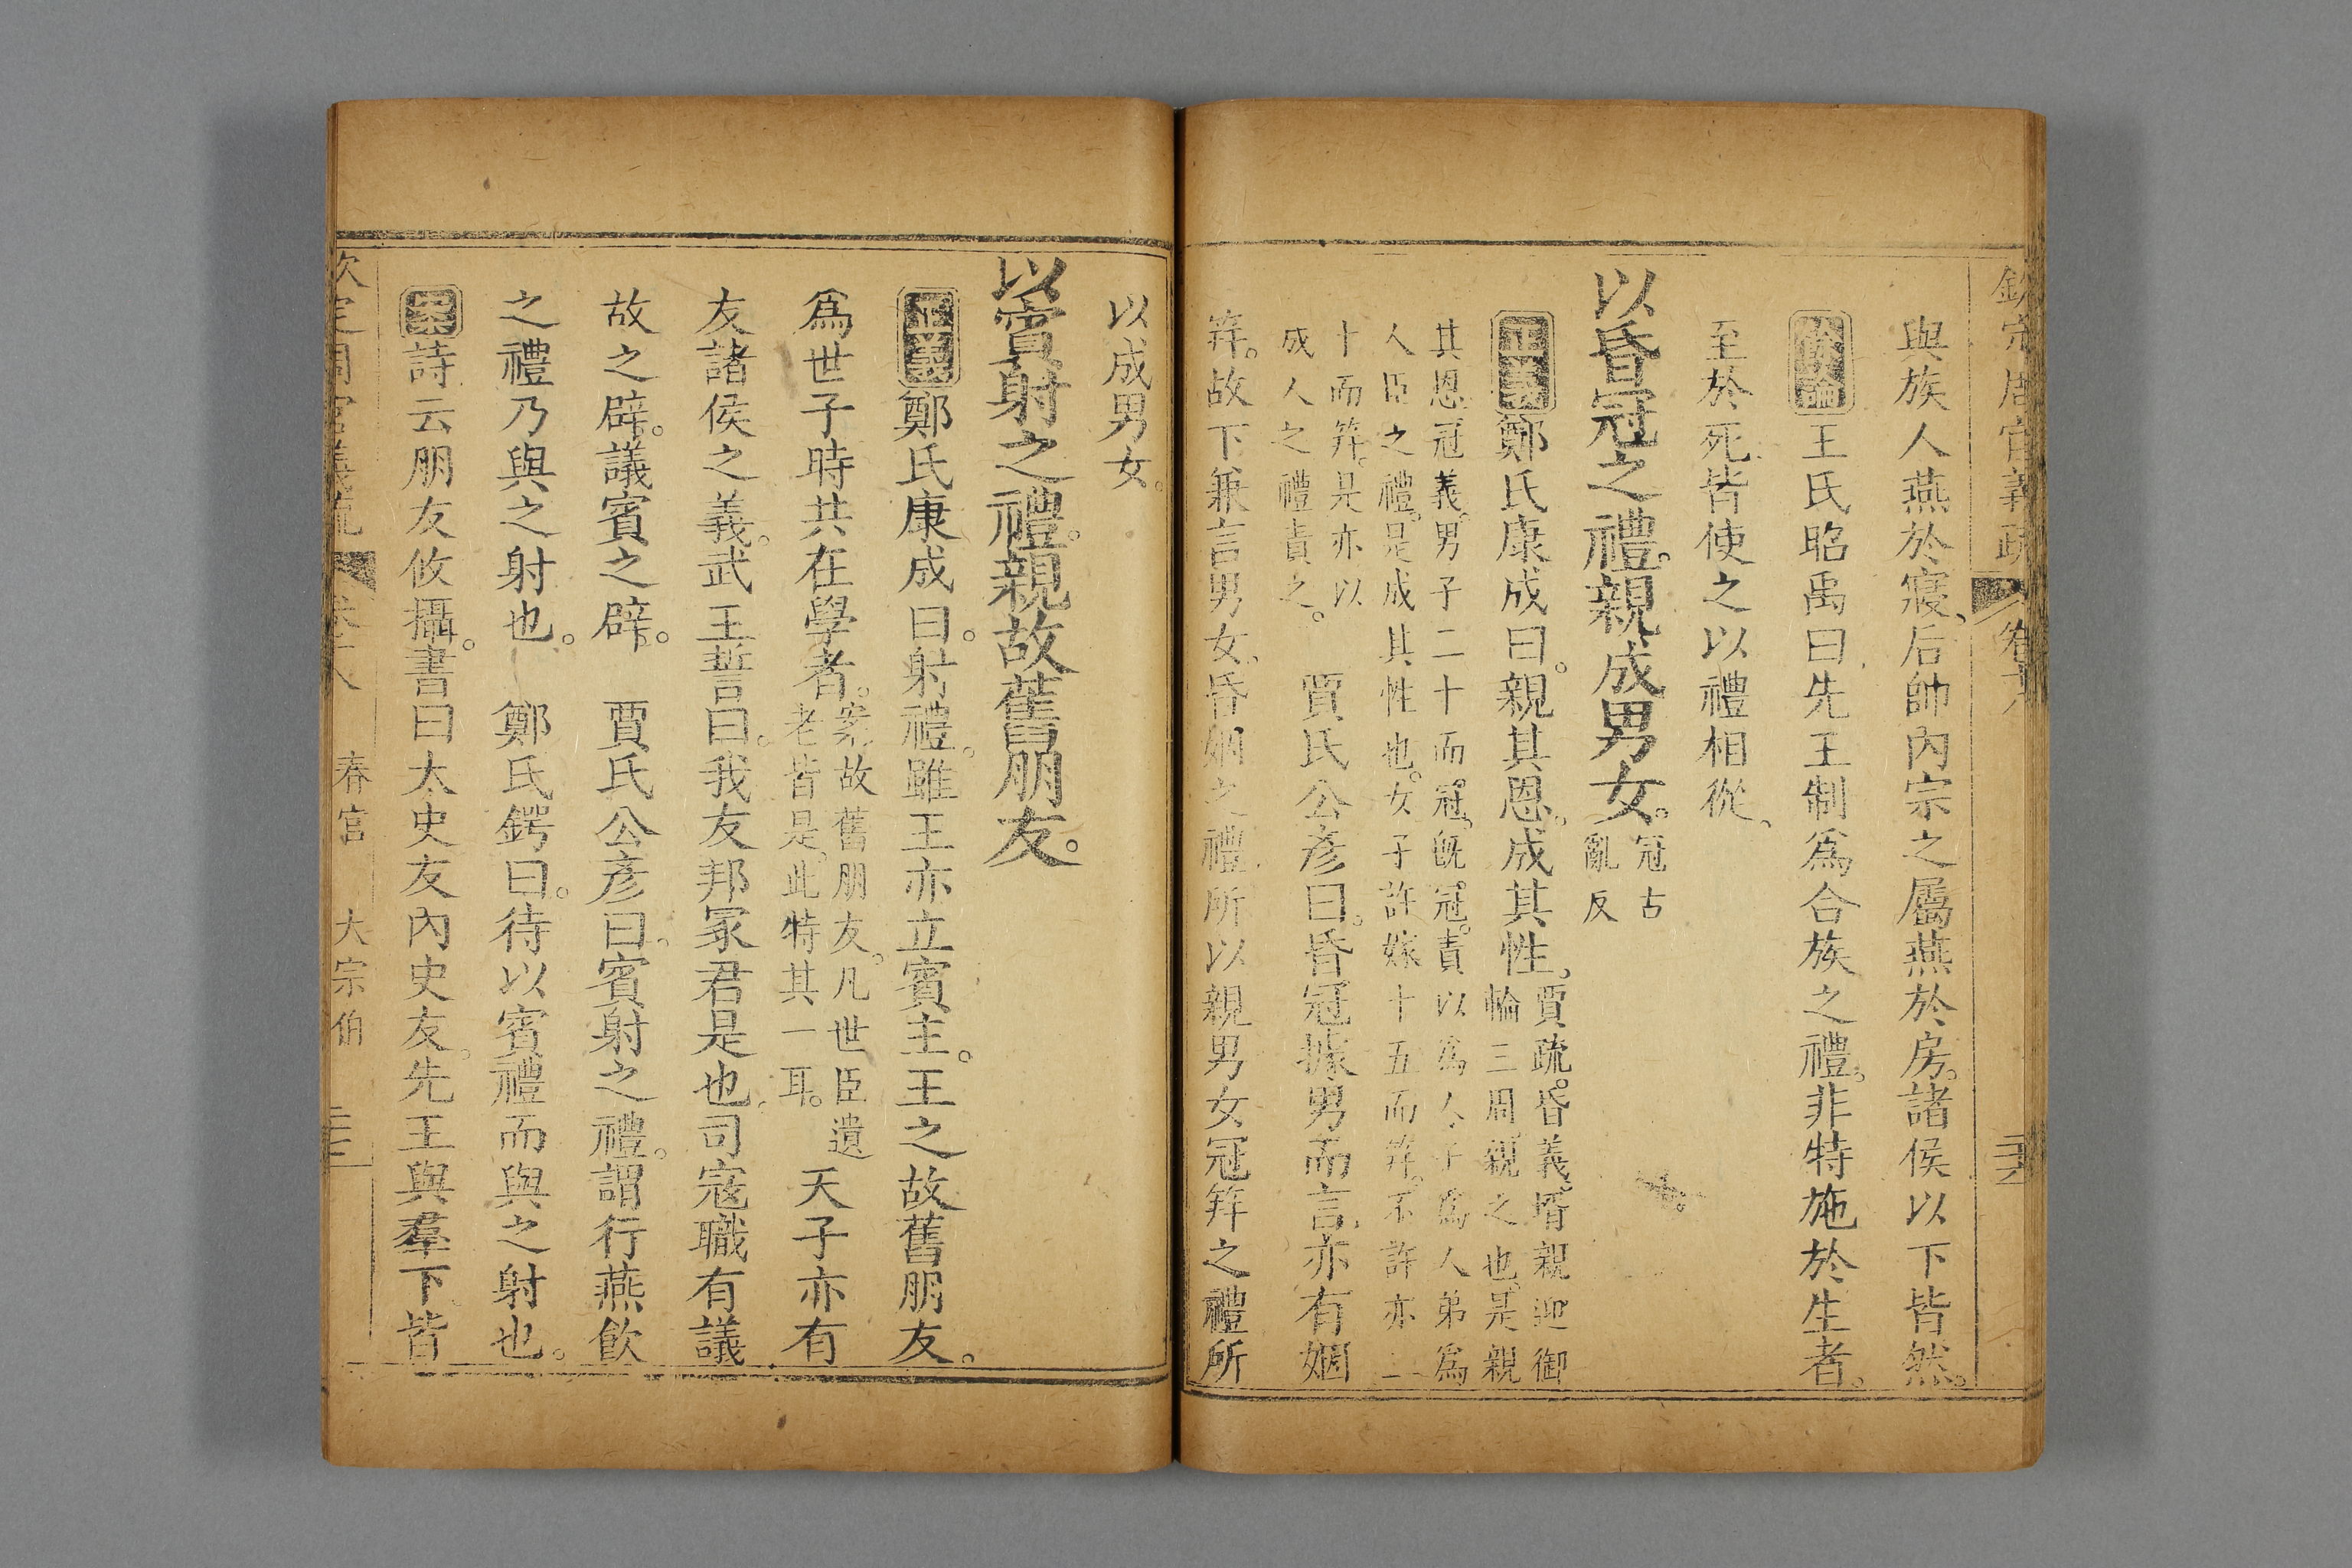 欽定周官義疏 卷十八
與族人燕於寢后帥內宗之屬燕於房諸侯以下皆然
餘論王氏昭禹曰先王制為合族之禮非特施於生者
至於死皆使之以禮相從
以昏冠之禮親成男女冠古
亂反
正義鄭氏康成曰親其恩成其性賈疏昏義壻親迎御
輪三周親之也是親
其恩冠義男子二十而冠既冠責以為人子為人弟為
人臣之禮是成其性也女子許嫁十五而笄不許亦二
十而笄是亦以
成人之禮責之
賈氏公彥曰昏冠據男而言亦有姻
笄故下兼言男女昏姻之禮所以親男女冠笄之禮所
以成男女
以賓射之禮親故舊朋友
正義鄭氏康成曰射禮雖王亦立賓主王之故舊朋友
為世子時共在學者案故舊朋友凡世臣遺
老皆是此特其一耳
天子亦有
友諸侯之義武王誓曰我友邦冢君是也司寇職有議
故之辟議賓之辟 賈氏公彥曰賓射之禮謂行燕飲
之禮乃與之射也 鄭氏鍔曰待以賓禮而與之射也
案詩云朋友攸攝書曰太史友內史友先王與羣下皆
欽定周官義疏 卷十八 春官 大宗伯